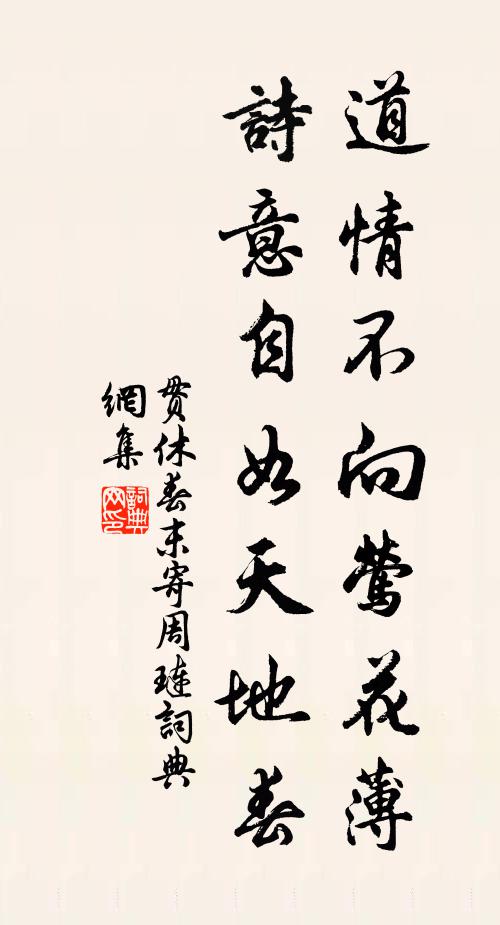 道情不向鶯花薄
詩意自如天地春
貫休春末寄周璉詞典
網集
詞典
网印